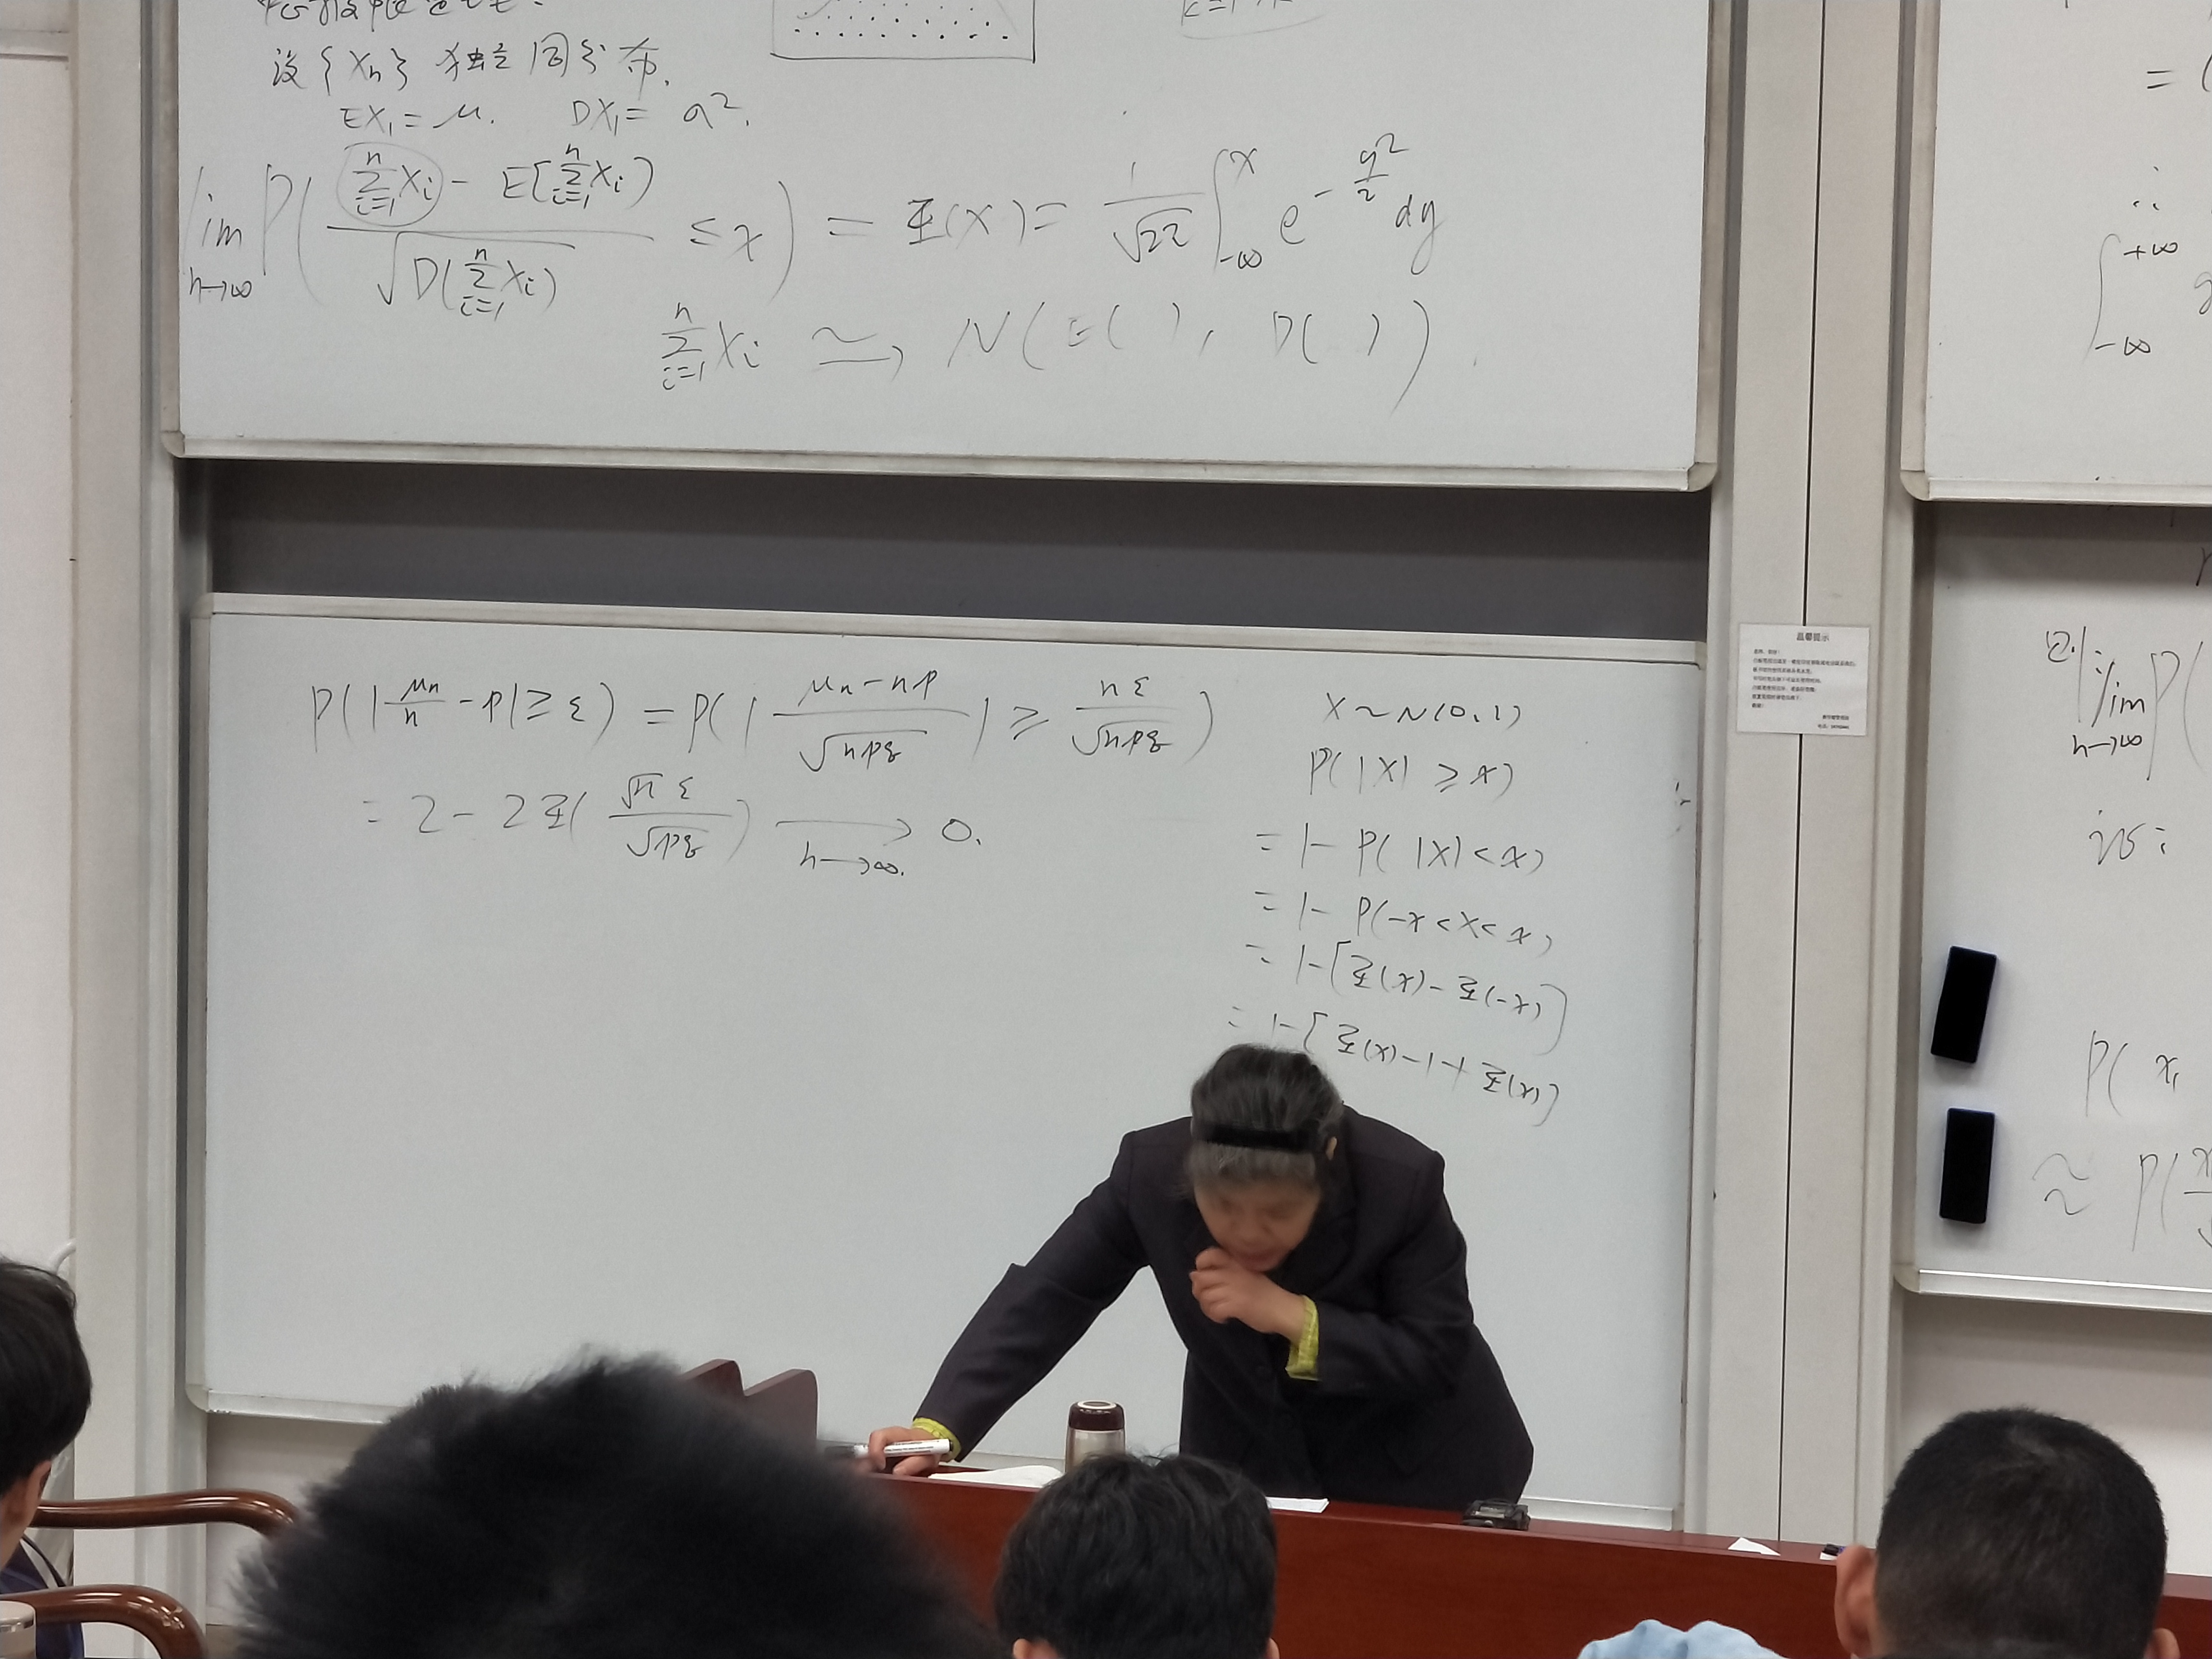 设{Xn} 独立同分布.
EX₁=μ. DX₁= σ².
lim n→∞ P( (Σ_{i=1}^{n} Xi - E[Σ_{i=1}^{n} Xi]) / √D(Σ_{i=1}^{n} Xi) ≤ x ) = Φ(x) = 1/√2π ∫_{-∞}^{x} e^{-y²/2} dy
Σ_{i=1}^{n} Xi ≃ N( E( ), D( ) ).
P(|μn/n - p| ≥ ε) = P(| (μn - np)/√npq | ≥ nε/√npq )
= 2 - 2Φ( √n ε/√pq ) → n→∞. 0.
X ~ N(0,1)
P(|X| ≥ x)
= 1- P(|X| < x)
= 1- P(-x < X < x)
= 1-[Φ(x) - Φ(-x)]
= 1-[Φ(x) -1 + Φ(x)]
温馨提示
= (
∴
∫_{-∞}^{+∞}
②. lim n→∞ P(
P( x₁
≈ P(